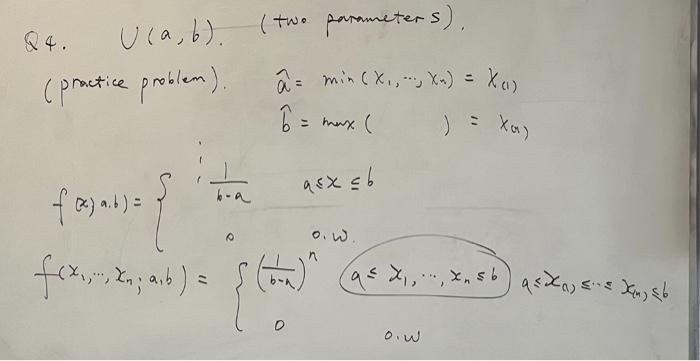 Q4. U(a,b). (two parameters).
(practice problem). â = min(X₁,⋯,Xₙ) = X₍₁₎
b̂ = max( ) = X₍ₙ₎
f(x; a,b) = { 1/(b-a) a≤x≤b
0 o.w.
f(x₁,⋯,xₙ; a,b) = { (1/(b-a))ⁿ a≤ x₁,⋯,xₙ ≤b a≤X₍₁₎≤⋯≤X₍ₙ₎≤b
0 o.w